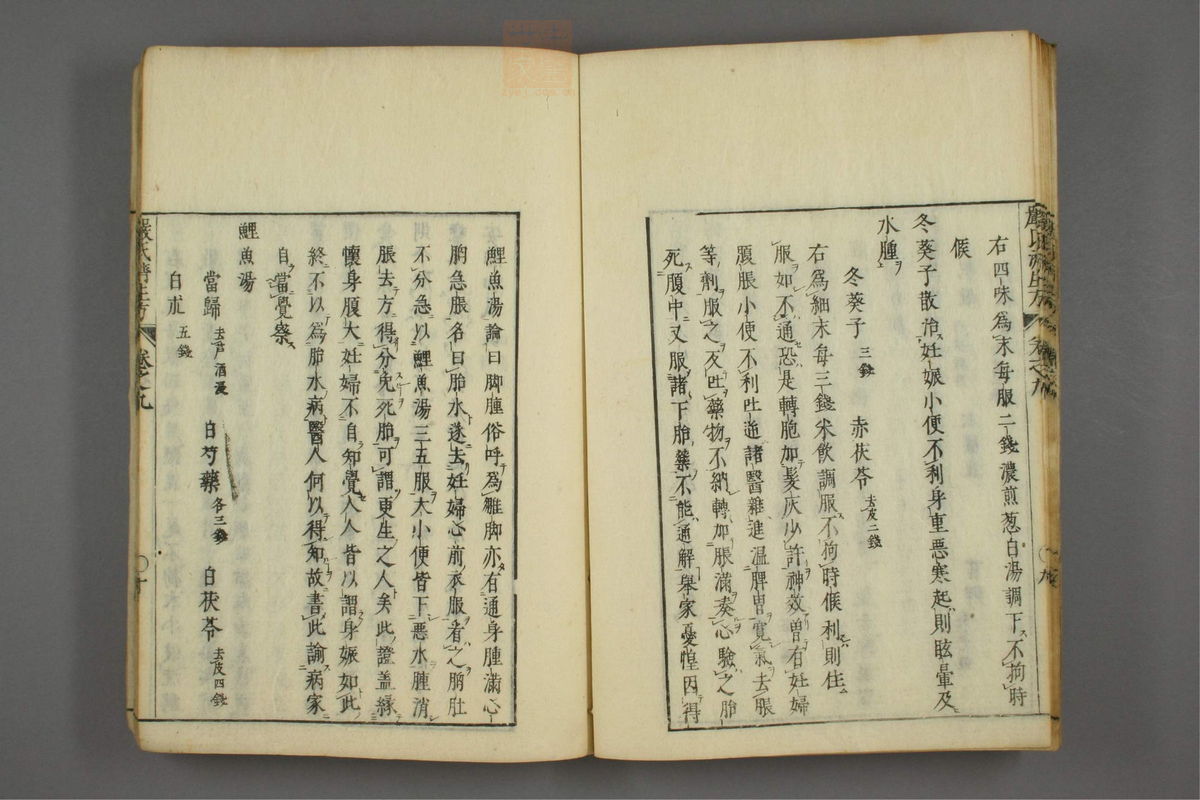 右四味爲末每服二錢濃煎葱白湯調下不拘時
候
冬葵子散治妊娠小便不利身重惡寒起則眩暈及
水腫
冬葵子 三錢 赤茯苓 去皮二錢
右爲細末每三錢米飲調服不拘時候利則住
服如不通恐是轉胞加髮灰少許神效曾有妊婦
腹脹小便不利吐逆諸醫雜進溫脾胃寬氣去脹
等劑服之反吐藥物不納轉加脹滿奏心驗之胎
死腹中又服諸下胎藥不能通解舉家憂惶因得
鯉魚湯論曰脚腫俗呼爲皺脚亦有通身腫滿心
胸急脹名曰胎水遂去妊婦心前衣服看之胸肚
不分急以鯉魚湯三五服大小便皆下惡水腫消
脹去方得分免死胎可謂更生之人矣此證盖緣
懷身腹大妊婦不自知覺人人皆以謂身娠如此
終不以爲胎水病醫人何以得知故書此諭病家
自當覺察
鯉魚湯
當歸 去芦酒浸 白芍藥 各三錢 白茯苓 去皮四錢
白朮 五錢
嚴氏濟生方 卷之九 〇十